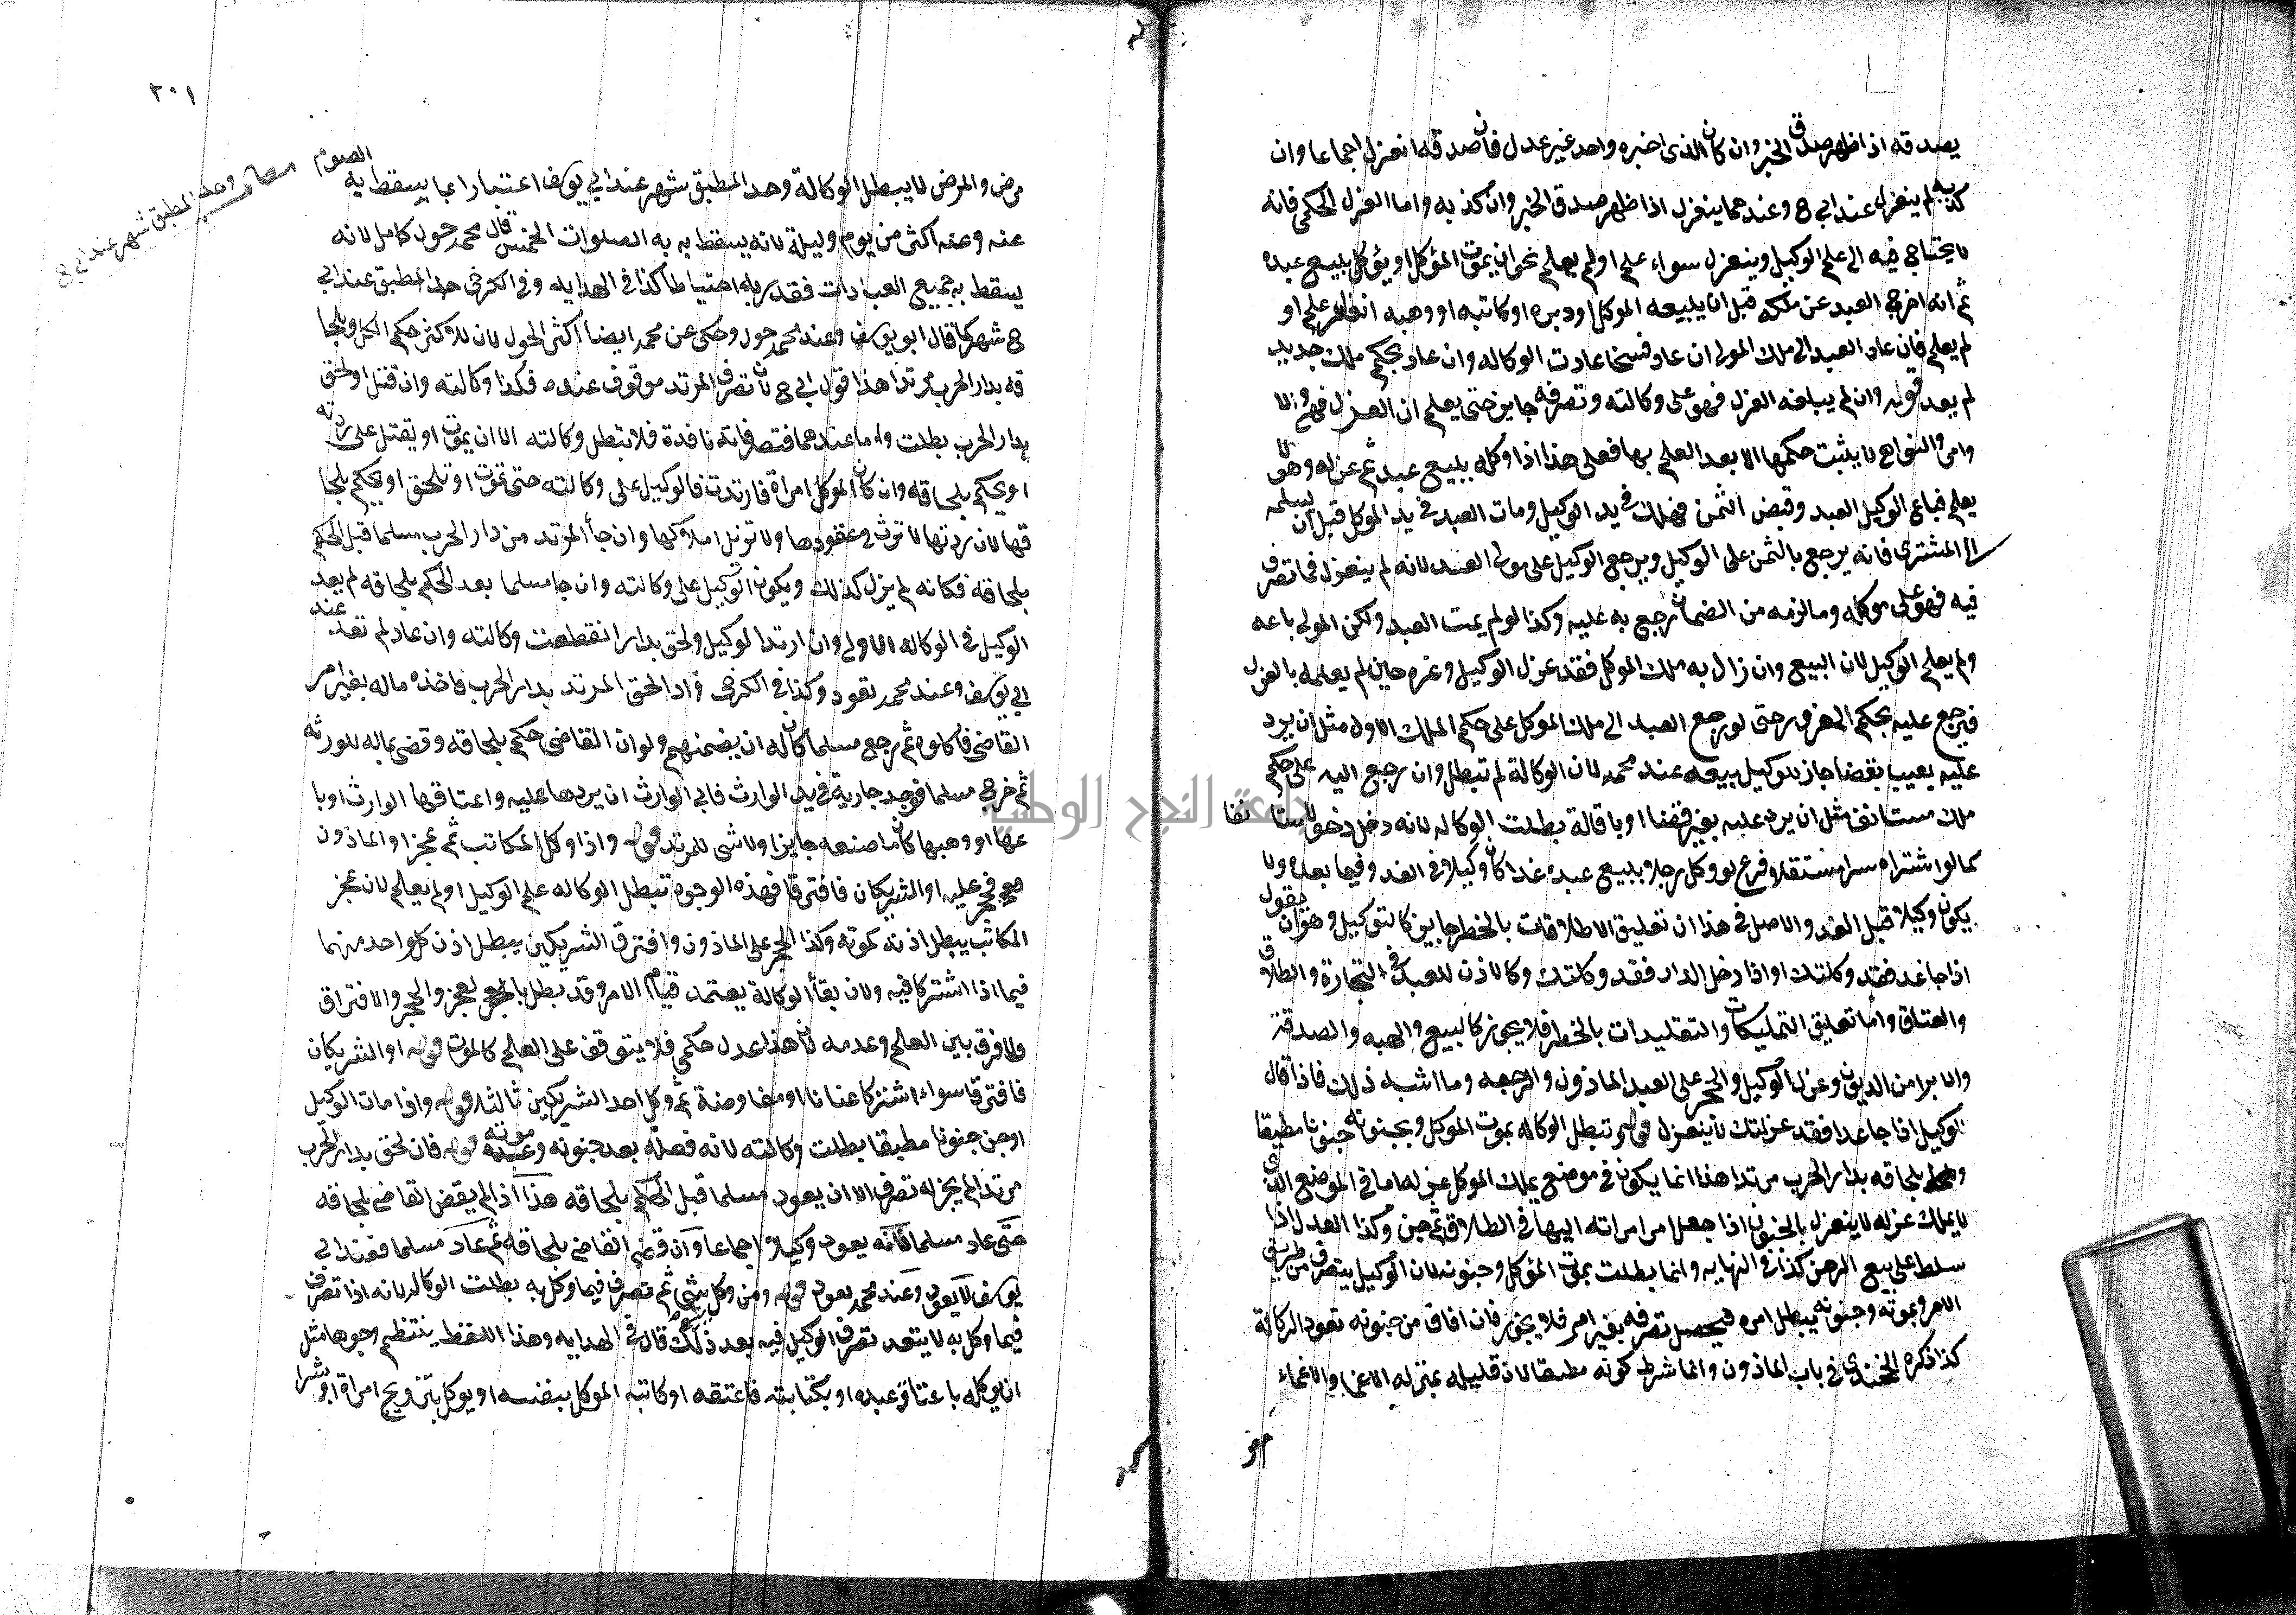 يصدقه اذا ظهر صدق الخبر وان كان الذى اخبره واحد غير عدل فان صدقه انعزل اجماعا وان
كذبه لم ينعزل عند ابي ح وعندهما ينعزل اذا ظهر صدق الخبر وان كذبه واما العزل الحكمى فانه
لا يحتاج فيه الى علم الوكيل وينعزل سواء علم او لم يعلم نحو ان يموت الموكل او يوكل ببيع عبده
ثم انه اخرج العبد عن ملكه قبل ان يبيعه الموكل او دبره او كاتبه او وهبه علم او
لم يعلم فان عاد العبد الى ملك المولى ان عاد فسخا عادت الوكاله وان عاد بحكم ملك جديد
لم يعد قوله وان لم يبلغه العزل فهو على وكالته وتصرفه جايز حتى يعلم ان العزل نهى والا
وامر والنواهى لا يثبت حكمها الا بعد العلم بها فعلى هذا اذا وكله ببيع عبد ثم عزله وهو لا
يعلم فباع الوكيل العبد وقبض الثمن فهلك فى يد الوكيل ومات العبد فى يد الموكل قبل ان يسلمه
الى المشترى فانه يرجع بالثمن على الوكيل ويرجع الوكيل على مولى العبد لانه لم ينعزل فما تصرف
فيه فهو على موكله وما لزمه من الضمان رجع به عليه وكذا لو لم يمت العبد ولكن المولى باعه
ولم يعلم الوكيل لان البيع وان زال به ملك الموكل فقد عزل الوكيل وغره حين لم يعلمه بالعزل
فيرجع عليه بحكم الغرور حتى لو رجع العبد الى ملك الموكل على حكم الملك الاول مثل ان يرد
عليه بعيب بقضا جاز للوكيل بيعه عند محمد لان الوكالة لم تبطل وان رجع اليه على حكم
ملك مستانف مثل ان يرد عليه بغير قضا او باقالة بطلت الوكاله لانه دخل دخولا مستانفا
كما لو اشتراه شرا مستقلا فرع لو وكل رجلا ببيع عبده غدا كان وكيلا فى الغد وفيما بعده ولا
يكون وكيلا قبل الغد والاصل فى هذا ان تعليق الاطلاقات بالخطر جايز كالتوكيل وهو ان يقول
اذا جا غد فقد وكلتك او اذا دخل الدار فقد وكلتك وكالاذن للعبد فى التجارة والطلاق
والعتاق واما تعليق التمليكات والتقليدات بالخطر فلا يجوز كالبيع والهبه والصدقة
والابرا من الديون وعزل الوكيل والحجر على العبد الماذون والرجعه وما اشبه ذلك فاذا قال
الوكيل اذا جا غد فقد عزلتك لا ينعزل قوله وتبطل الوكاله بموت الموكل وبجنونه جنونا مطبقا
بلحاقه بدار الحرب مرتدا هذا انما يكون فى موضع يملك الموكل عزله اما فى الموضع الذى
لا يملك عزله لا ينعزل بالجنون اذا جعل امر امراته اليها فى الطلاق ثم جن وكذا العدل اذا
سلط على بيع الرهن كذا فى النهايه وانما بطلت بموت الموكل وجنونه لان الوكيل يتصرف من طريق
الامر وبموته وجنونه يبطل امره فيحصل تصرفه بغير امر فلا يجوز فان افاق من جنونه تعود الوكالة
كذا ذكره الخجندى فى باب الماذون وانما شرط كونه مطبقا لان قليله بمنزله الاغما والاغماء
مرض
٢٠١
مرض والمرض لا يبطل الوكالة وحد المطبق شهر عند ابي يوسف اعتبارا بما يسقط به الصوم
وحد المطبق شهر عند ابي ح
عنه وعنه اكثر من يوم وليلة لانه يسقط به الصلوات الخمس قال محمد حول كامل لانه
يسقط به جميع العبادات فقدر به احتياطا كذا فى الهدايه وفى الكرخى حد المطبق عند ابي
ح شهر كما قال ابو يوسف وعند محمد حول وحكى عن محمد ايضا اكثر الحول لان للاكثر حكم الكل وبلحا
قه بدار الحرب مرتدا هذا قول ابي ح لان تصرف المرتد موقوف عنده فكذا وكالته وان قتل او لحق
بدار الحرب بطلت واما عندهما فتصرفاته نافدة فلا تبطل وكالته الا ان يموت او يقتل على ردته
او يحكم بلحاقه وان كان الموكل امراة فارتدت فالوكيل على وكالته حتى تموت او تلحق او يحكم بلحا
قها لان ردتها لا توثر فى عقودها ولا تزيل املاكها وان جا المرتد من دار الحرب مسلما قبل الحكم
بلحاقه فكانه لم يزل كذلك ويكون الوكيل على وكالته وان جا مسلما بعد الحكم بلحاقه لم يعد
الوكيل فى الوكاله الاولى وان ارتد الوكيل ولحق بدار انقطعت وكالته وان عاد لم تعد عند
ابي يوسف وعند محمد تعود وكذا فى الكرخى واذا لحق المرتد بدار الحرب فاخذه ماله بغير امر
القاضى فاكلوه ثم رجع مسلما كان له ان يضمنهم ولو ان القاضى حكم بلحاقه وقضى بماله للورثه
ثم خرج مسلما فوجد جارية فى يد الوارث فابى الوارث ان يردها عليه واعتاقها الوارث او با
عها او وهبها كان ما صنعه جايزا ولا شى للمرتد قوله واذا وكل المكاتب ثم عجز او الماذون
فحجر عليه او الشريكان فافترقا فهذه الوجوه تبطل الوكاله علم الوكيل او لم يعلم لان عجز
المكاتب يبطل اذنه كموته وكذا الحجر على الماذون وافتراق الشريكين يبطل اذن كل واحد منهما
فيما اذا اشتركا فيه ولان بقا الوكالة يعتمد قيام الامر وقد بطل لعجز والحجر والافتراق
ولا فرق بين العلم وعدمه لان هذا عدل حكمى فلا يتوقف على العلم كالموت قوله او الشريكان
فافترقا سواء اشتركا عنانا او مفاوضة ثم وكل احد الشريكين ثالثا قوله واذا مات الوكيل
او جن جنونا مطبقا بطلت وكالته لانه فعله بعد جنونه وموته قوله فان لحق بدار الحرب
مرتدا لم يجز له تصرف الا ان يعود مسلما قبل الحكم بلحاقه هذا اذا لم يقض القاضى بلحاقه
حتى عاد مسلما فانه يعود وكيلا اجماعا وان قضى القاضى بلحاقه ثم عاد مسلما فعند ابي
يوسف لا يعود وعند محمد يعود قوله ومن وكل بشى ثم تصرف فيما وكل به بطلت الوكاله لانه اذا تصرف
فيما وكل به لا يتعد تصرف الوكيل فيه بعد ذلك قال فى الهدايه وهذا اللفظ ينتظم وجوها مثل
ان يوكله باعتاق عبده او بكتابته فاعتقه او كاتبه الموكل بنفسه او يوكل بتزويج امراة او بشرا
جامعة النجاح الوطنية